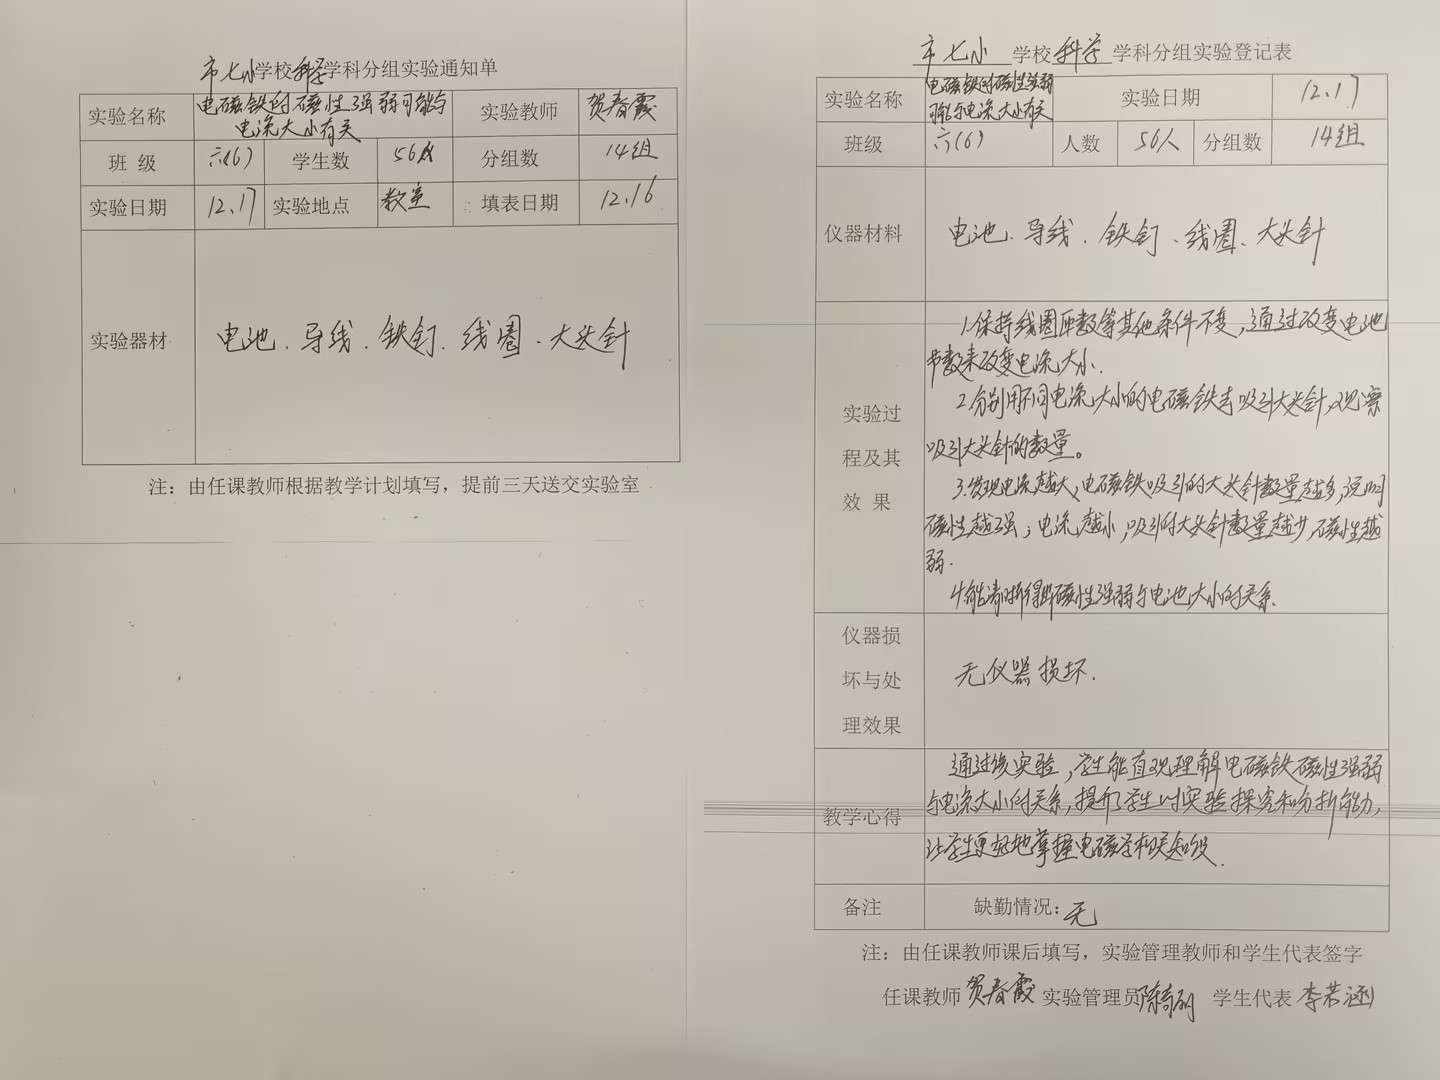 市七小学校科学学科分组实验通知单
实验名称 电磁铁的磁性强弱可能与
电流大小有关 实验教师 贺春霞
班 级 六(6) 学生数 56人 分组数 14组
实验日期 12.17 实验地点 教室 填表日期 12.16
实验器材 电池、导线、铁钉、线圈、大头针
注：由任课教师根据教学计划填写，提前三天送交实验室
市七小 学校 科学 学科分组实验登记表
实验名称 电磁铁的磁性强弱
可能与电流大小有关 实验日期 12.17
班级 六(6) 人数 56人 分组数 14组
仪器材料 电池、导线、铁钉、线圈、大头针
实验过
程及其
效 果
1.保持线圈匝数等其他条件不变，通过改变电池
节数来改变电流大小.
2.分别用不同电流大小的电磁铁去吸引大头针，观察
吸引大头针的数量。
3.发现电流越大，电磁铁吸引的大头针数量越多，说明
磁性越强；电流越小，吸引的大头针数量越少，磁性越
弱.
4.能清晰得出磁性强弱与电池大小的关系.
仪器损
坏与处
理效果
无仪器损坏.
教学心得
通过该实验，学生能直观理解电磁铁磁性强弱
与电流大小的关系，提升了学生对实验探究和分析能力，
让学生更好地掌握电磁学相关知识.
备注 缺勤情况：无
注：由任课教师课后填写，实验管理教师和学生代表签字
任课教师 贺春霞 实验管理员 陈 学生代表 李若涵